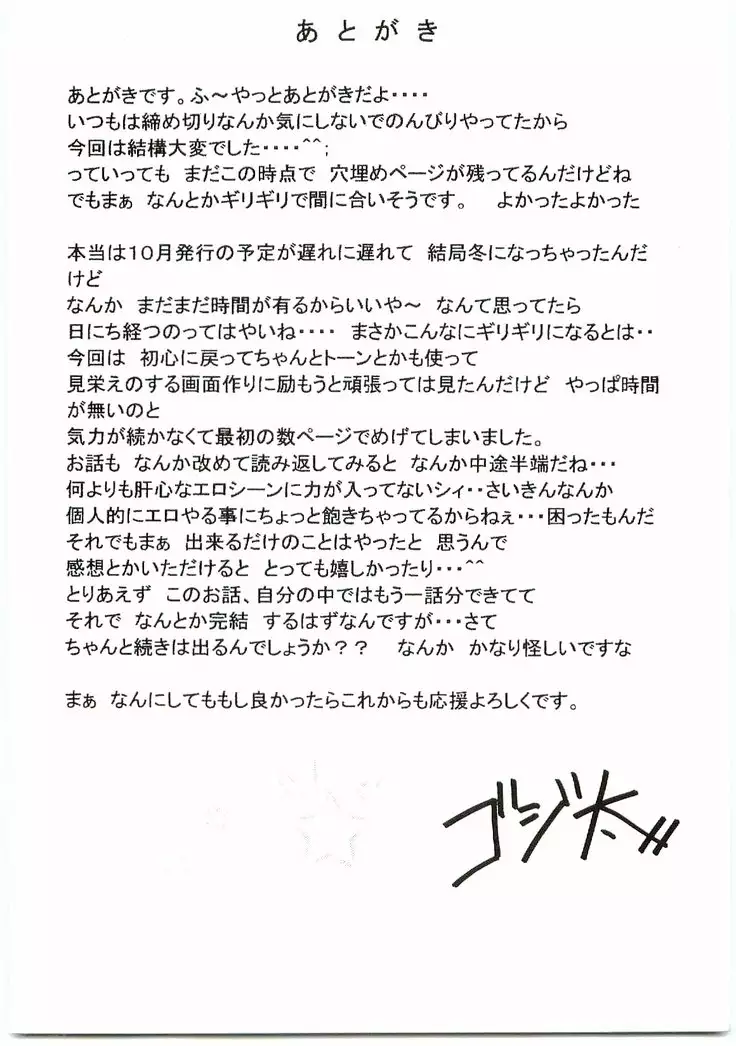 あとがき
あとがきです。ふ～やっとあとがきだよ・・・・
いつもは締め切りなんか気にしないでのんびりやってたから
今回は結構大変でした・・・・^^;
っていっても　まだこの時点で　穴埋めページが残ってるんだけどね
でもまぁ　なんとかギリギリで間に合いそうです。　よかったよかった
本当は１０月発行の予定が遅れに遅れて　結局冬になっちゃったんだ
けど
なんか　まだまだ時間が有るからいいや～　なんて思ってたら
日にち経つのってはやいね・・・・　まさかこんなにギリギリになるとは・・
今回は　初心に戻ってちゃんとトーンとかも使って
見栄えのする画面作りに励もうと頑張っては見たんだけど　やっぱ時間
が無いのと
気力が続かなくて最初の数ページでめげてしまいました。
お話も　なんか改めて読み返してみると　なんか中途半端だね・・・
何よりも肝心なエロシーンに力が入ってないシィ・・さいきんなんか
個人的にエロやる事にちょっと飽きちゃってるからねぇ・・・困ったもんだ
それでもまぁ　出来るだけのことはやったと　思うんで
感想とかいただけると　とっても嬉しかったり・・・^^
とりあえず　このお話、自分の中ではもう一話分できてて
それで　なんとか完結　するはずなんですが・・・さて
ちゃんと続きは出るんでしょうか？？　なんか　かなり怪しいですな
まぁ　なんにしてももし良かったらこれからも応援よろしくです。
ゴジ太